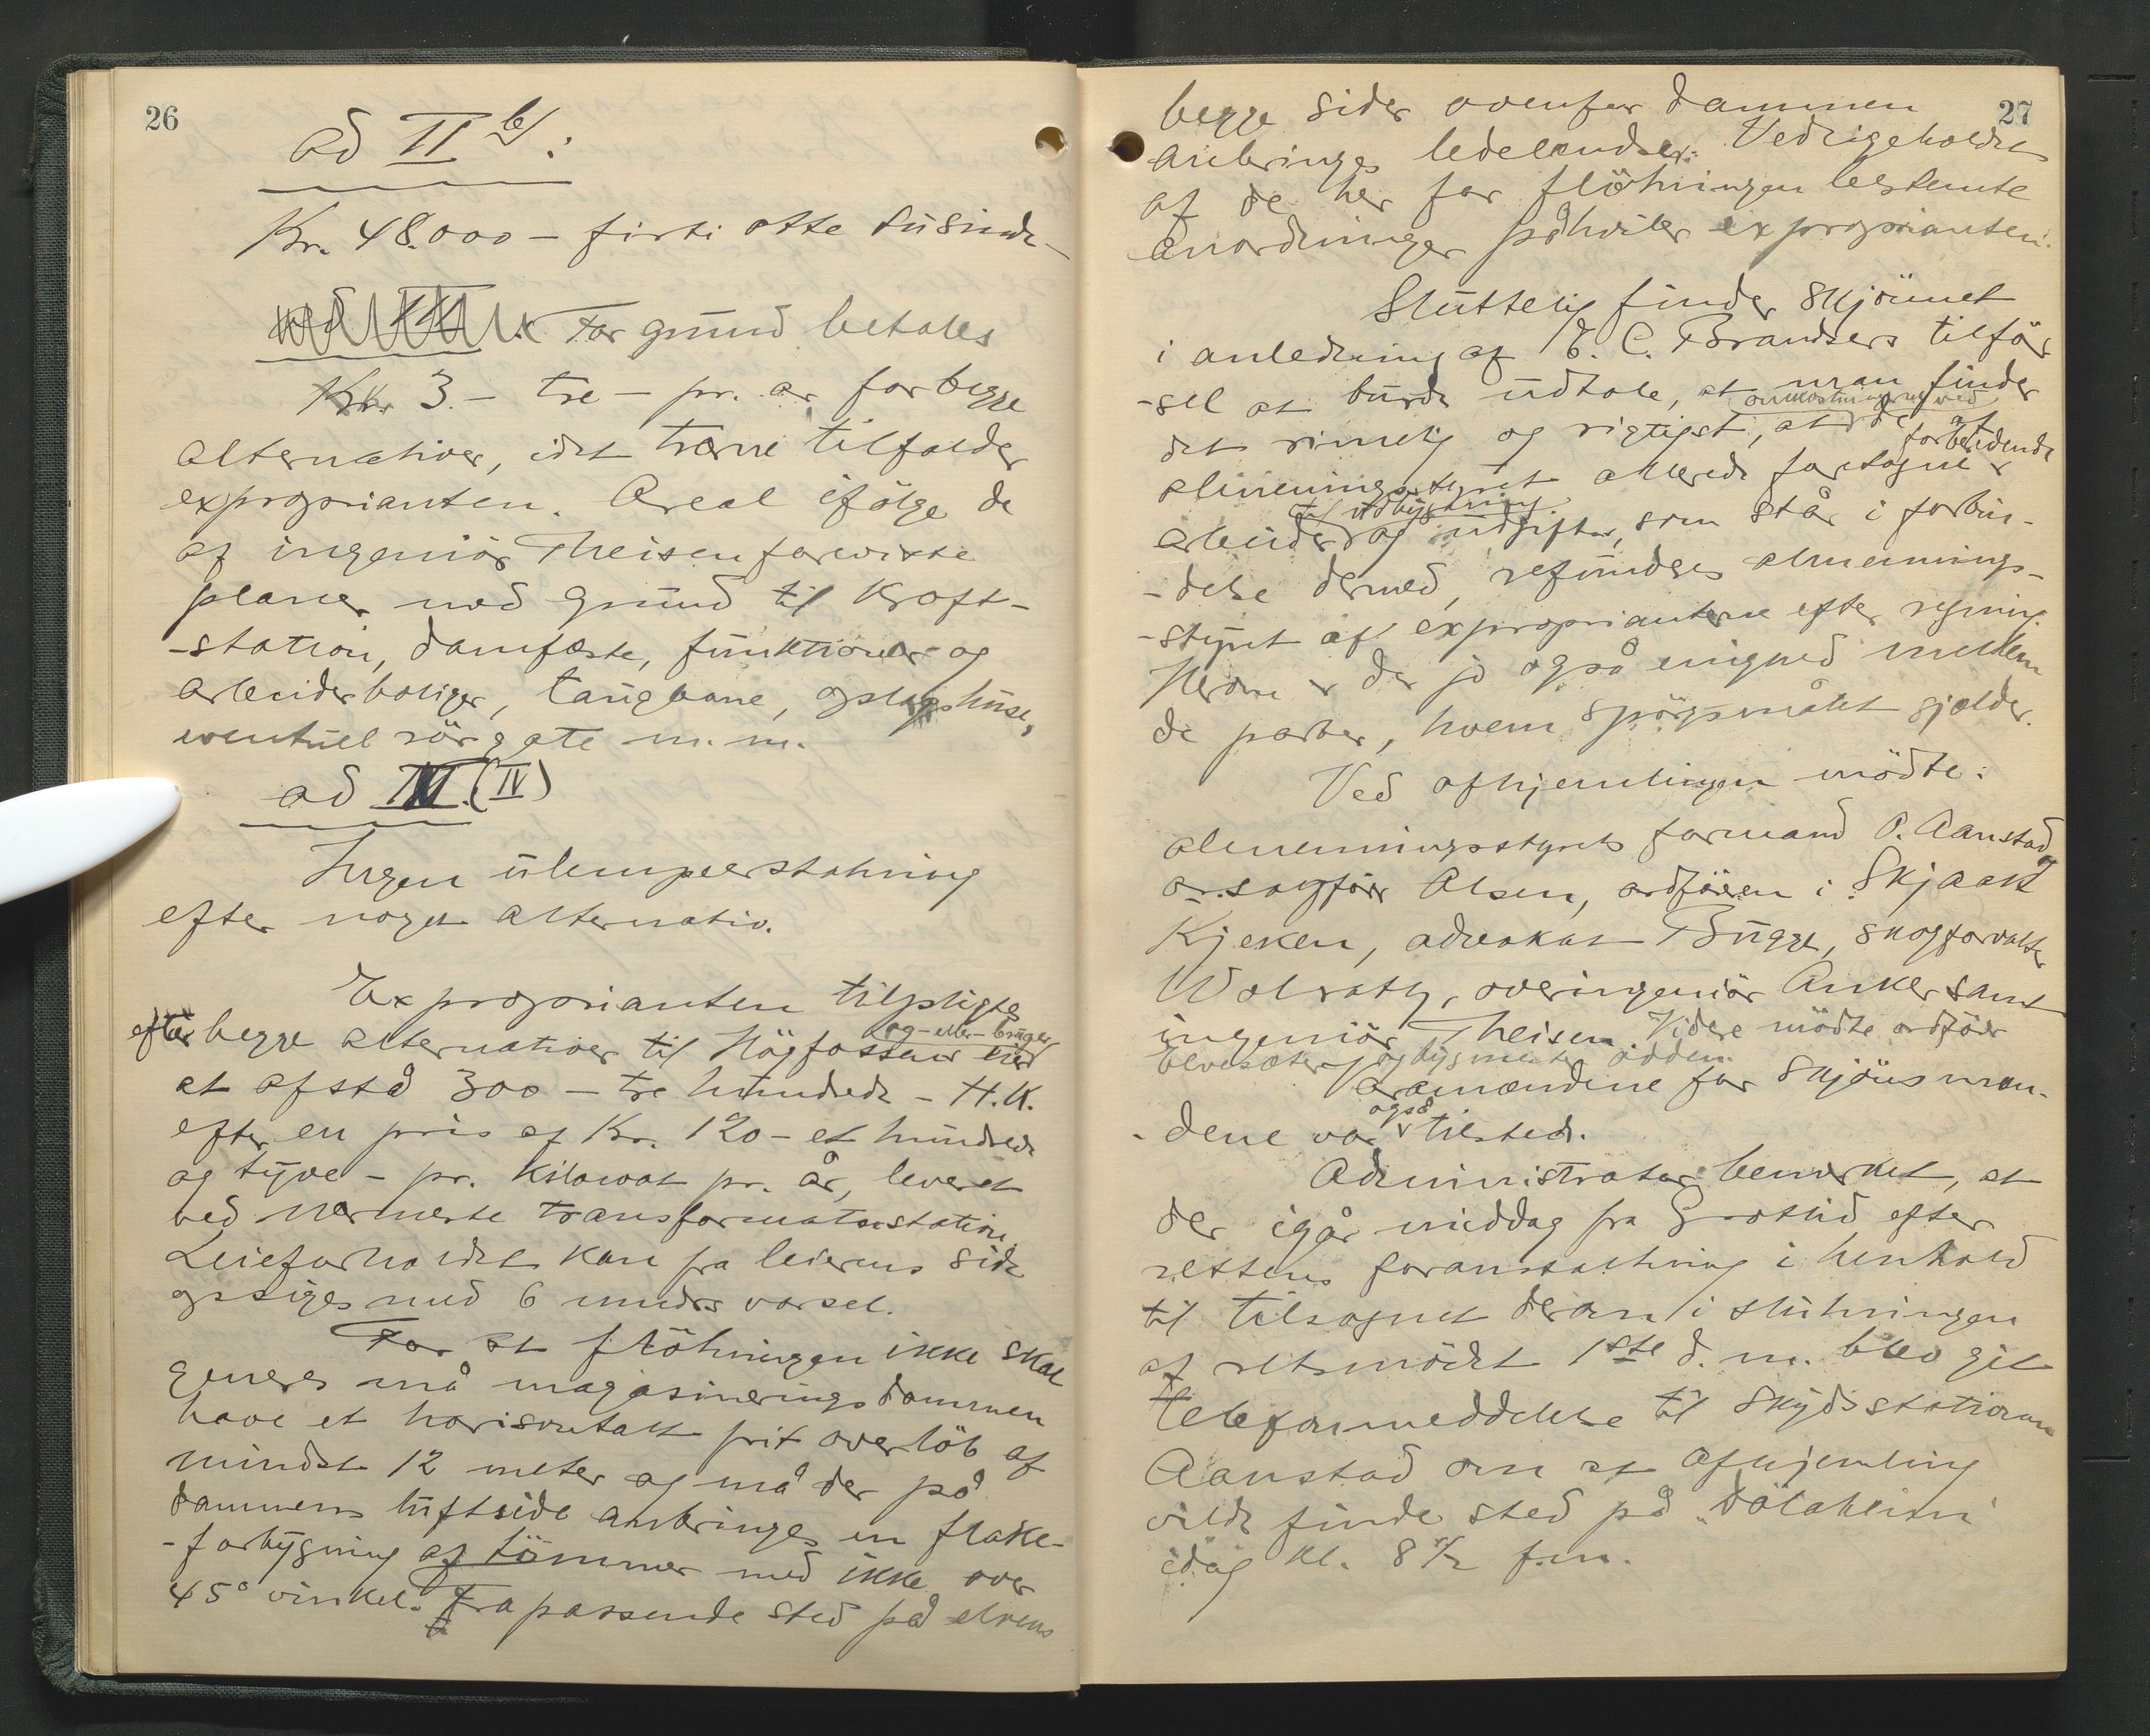 26
ad II b/:
Kr. 48.000 – firti otte tusinde –
For grund betales
Kr. 3.– tre – pr. ar for begge
alternativer, idet trærne tilfalder
exproprianten. Areal ifølge de
af ingeniör Theisen foreviste
planer med grund til kraft-
-station, damfæste, funktionær- og
arbeiderboliger, taugbane, opslagshuse,
eventuel rörgate m.m.
ad III (IV)
Ingen ulempeerstatning
efter noget alternativ.
Exproprianten tilpligtes
efter begge alternativer til Högfossens eier
og – eller – bruger
at afstå 300 – tre hundrede – H.K.
efter en pris af Kr. 120 – et hundrede
og tyve – pr. kilowat pr. år, leveret
ved nærmeste transformatorstation.
Leieforholdet kan fra leierens side
opsiges med 6 mndrs varsel.
For at flötningen ikke skal
generes må magasineringsdammen
have et horisontalt frit overlöb af
mindst 12 meter og må der på
dammens luftside anbringes en flake-
-forbygning af tömmer med ikke over
45° vinkel. Fra passende sted på elvens
27
begge sider ovenfor dammen
anbringes ledelændser. Vedligeholdet
af de her for flötningen bestemte
anordninger påhviler exproprianten.
Sluttelig finder skjönnet
i anledning af E. C. Brandsers tilför-
-sel at burde udtale, at man finder
det rimelig og rigtigst, at omkostningerne ved de af
almenningsstyret allerede foretagne forberedende
arbeider til udbygning og udgifter, som står i forbin-
-delse dermed, refunderes almennings-
-styret af exproprianterne efter regning.
Herom er der jo også enighed mellem
de parter, hvem spörgsmålet gjælder.
Ved afhjemlingen mödte:
almenningsstyrets formand O. Aanstad,
o.r.sagförer Olsen, ordföreren i Skjaak
Kjeken, advokat Bugge, skogforvalter
Wolrath, overingeniör Anker samt
ingeniör Theisen. Videre mödte ordförer
Elvesæter og bygmester Ødden.
Varamændene for skjönsmæn-
-dene var også tilstede.
Administrator bemærket, at
der igår middag fra Grotlid efter
rettens foranstaltning i henhold
til tilsagnet derom i slutningen
af retsmödet 1ste d. m. blev git
telefonmeddelelse til skydsstationen
Aanstad om at afhjemling
vilde finde sted på "Dölaheim"
idag kl. 8 1/2 f.m.